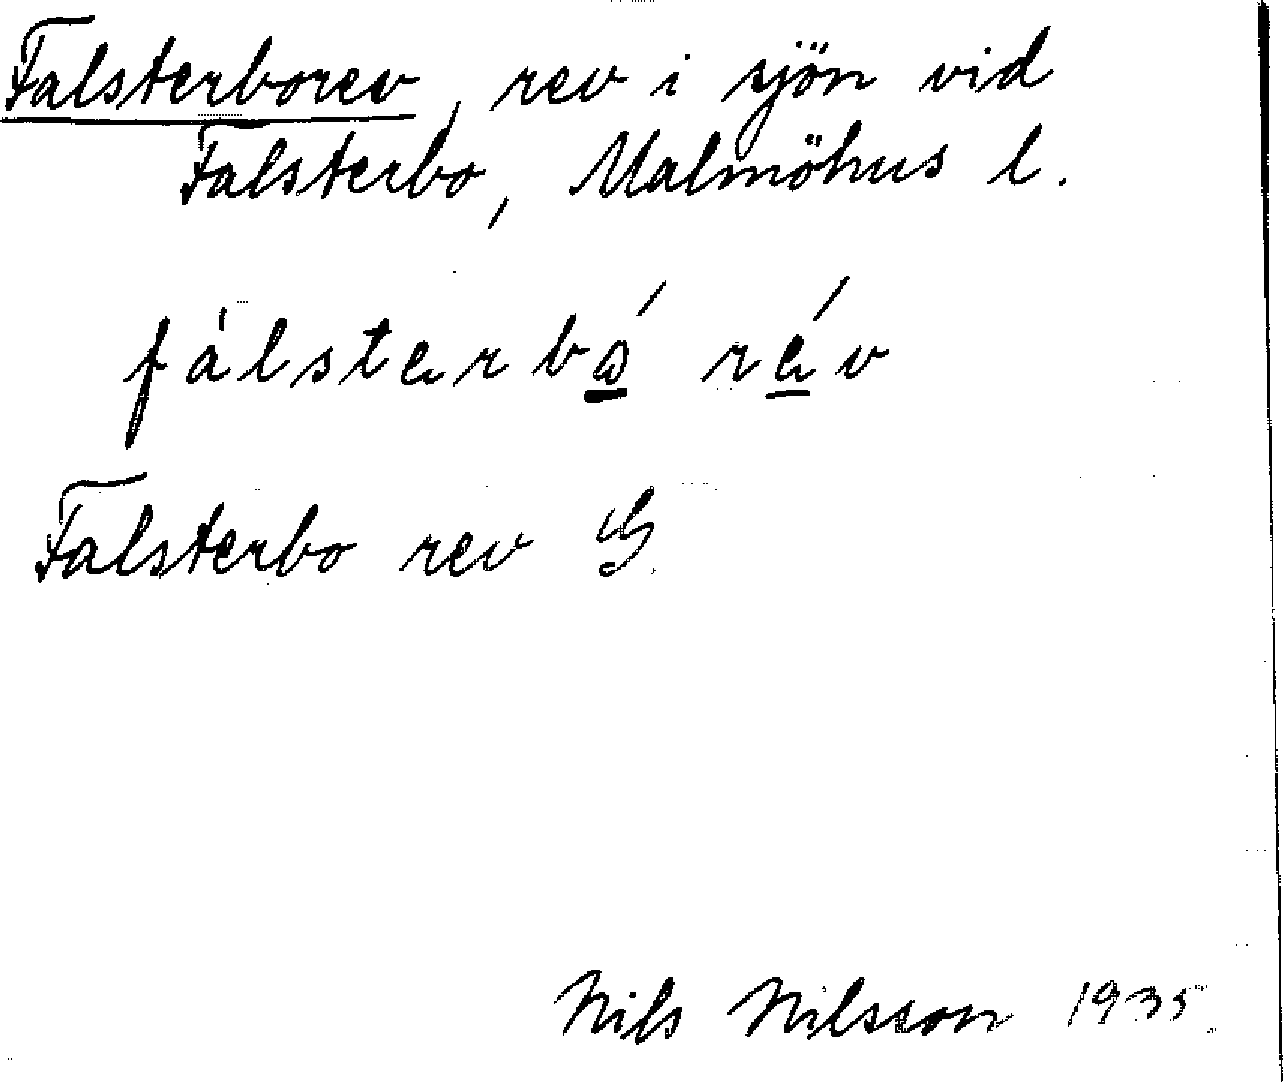 Falsterborev, rev i sjön vid
Falsterbo, Malmöhus l.
fàlsterbó rév
Falsterbo rev G
Nils Nilsson 1935.